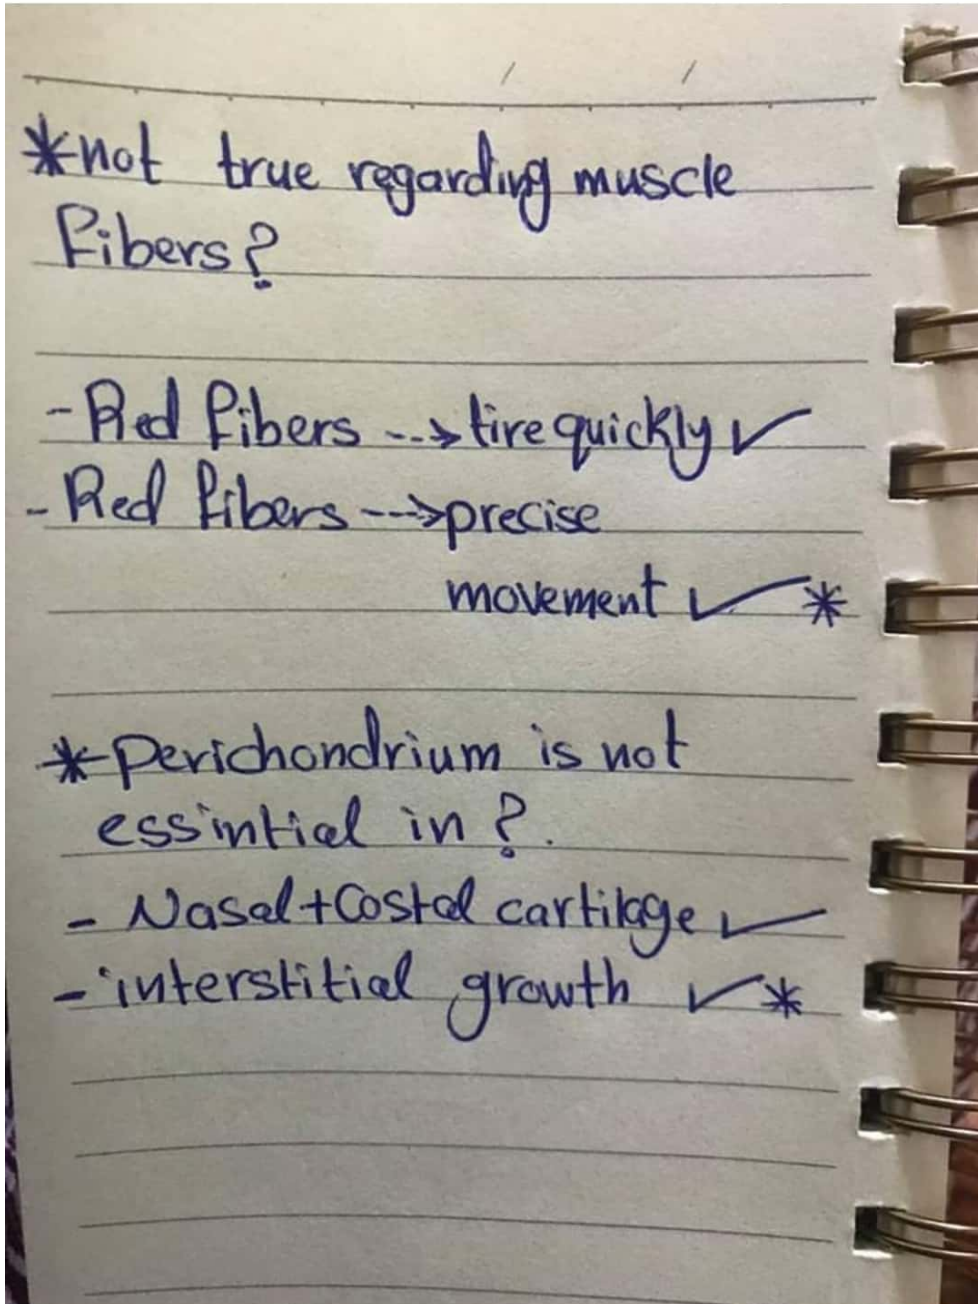 *not true regarding muscle
fibers?
- Red fibers ---> tire quickly ✓
- Red fibers ---> precise
movement ✓ *
*perichondrium is not
essintial in ?.
- Nasal + Costal cartilage ✓
- interstitial growth ✓ *